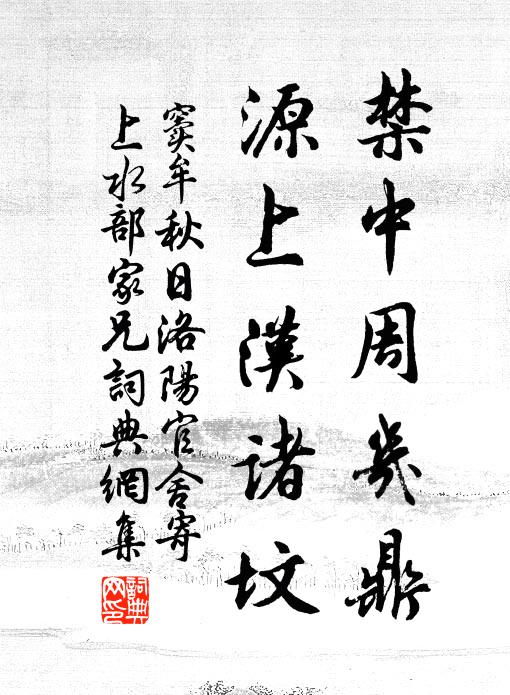 禁中周幾鼎
源上漢諸墳
竇牟秋日洛陽官舍寄
上水部家兄詞典網集
詞典
网印